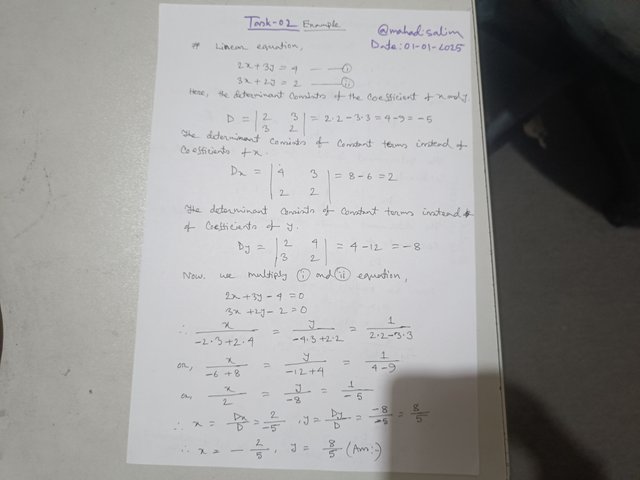 Task-02 Example
@mahadisalim
Date: 01-01-2025
# Linear equation,
2x+3y = 4 — (i)
3x+2y = 2 — (ii)
Here, the determinant consists of the coefficient of x and y.
D = | 2 3 | = 2.2 - 3.3 = 4-9 = -5
| 3 2 |
The determinant consists of constant terms instead of
coefficients of x.
Dx = | 4 3 | = 8-6 = 2
| 2 2 |
The determinant consists of constant terms instead
of coefficients of y.
Dy = | 2 4 | = 4-12 = -8
| 3 2 |
Now, we multiply (i) and (ii) equation,
2x+3y-4 = 0
3x+2y-2 = 0
∴ x/(-2.3+2.4) = y/(-4.3+2.2) = 1/(2.2-3.3)
or, x/(-6+8) = y/(-12+4) = 1/(4-9)
or, x/2 = y/-8 = 1/-5
∴ x = Dx/D = 2/-5, y = Dy/D = -8/-5 = 8/5
∴ x = -2/5, y = 8/5 (Ans:-)